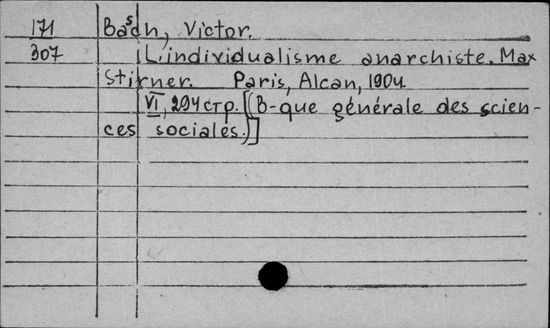 171 Basch, Victor.
307 L'individualisme anarchiste. Max
Stirner. Paris, Alcan, 1904.
VI, 294 стр. [(B-que générale des scien-
ces sociales.)]